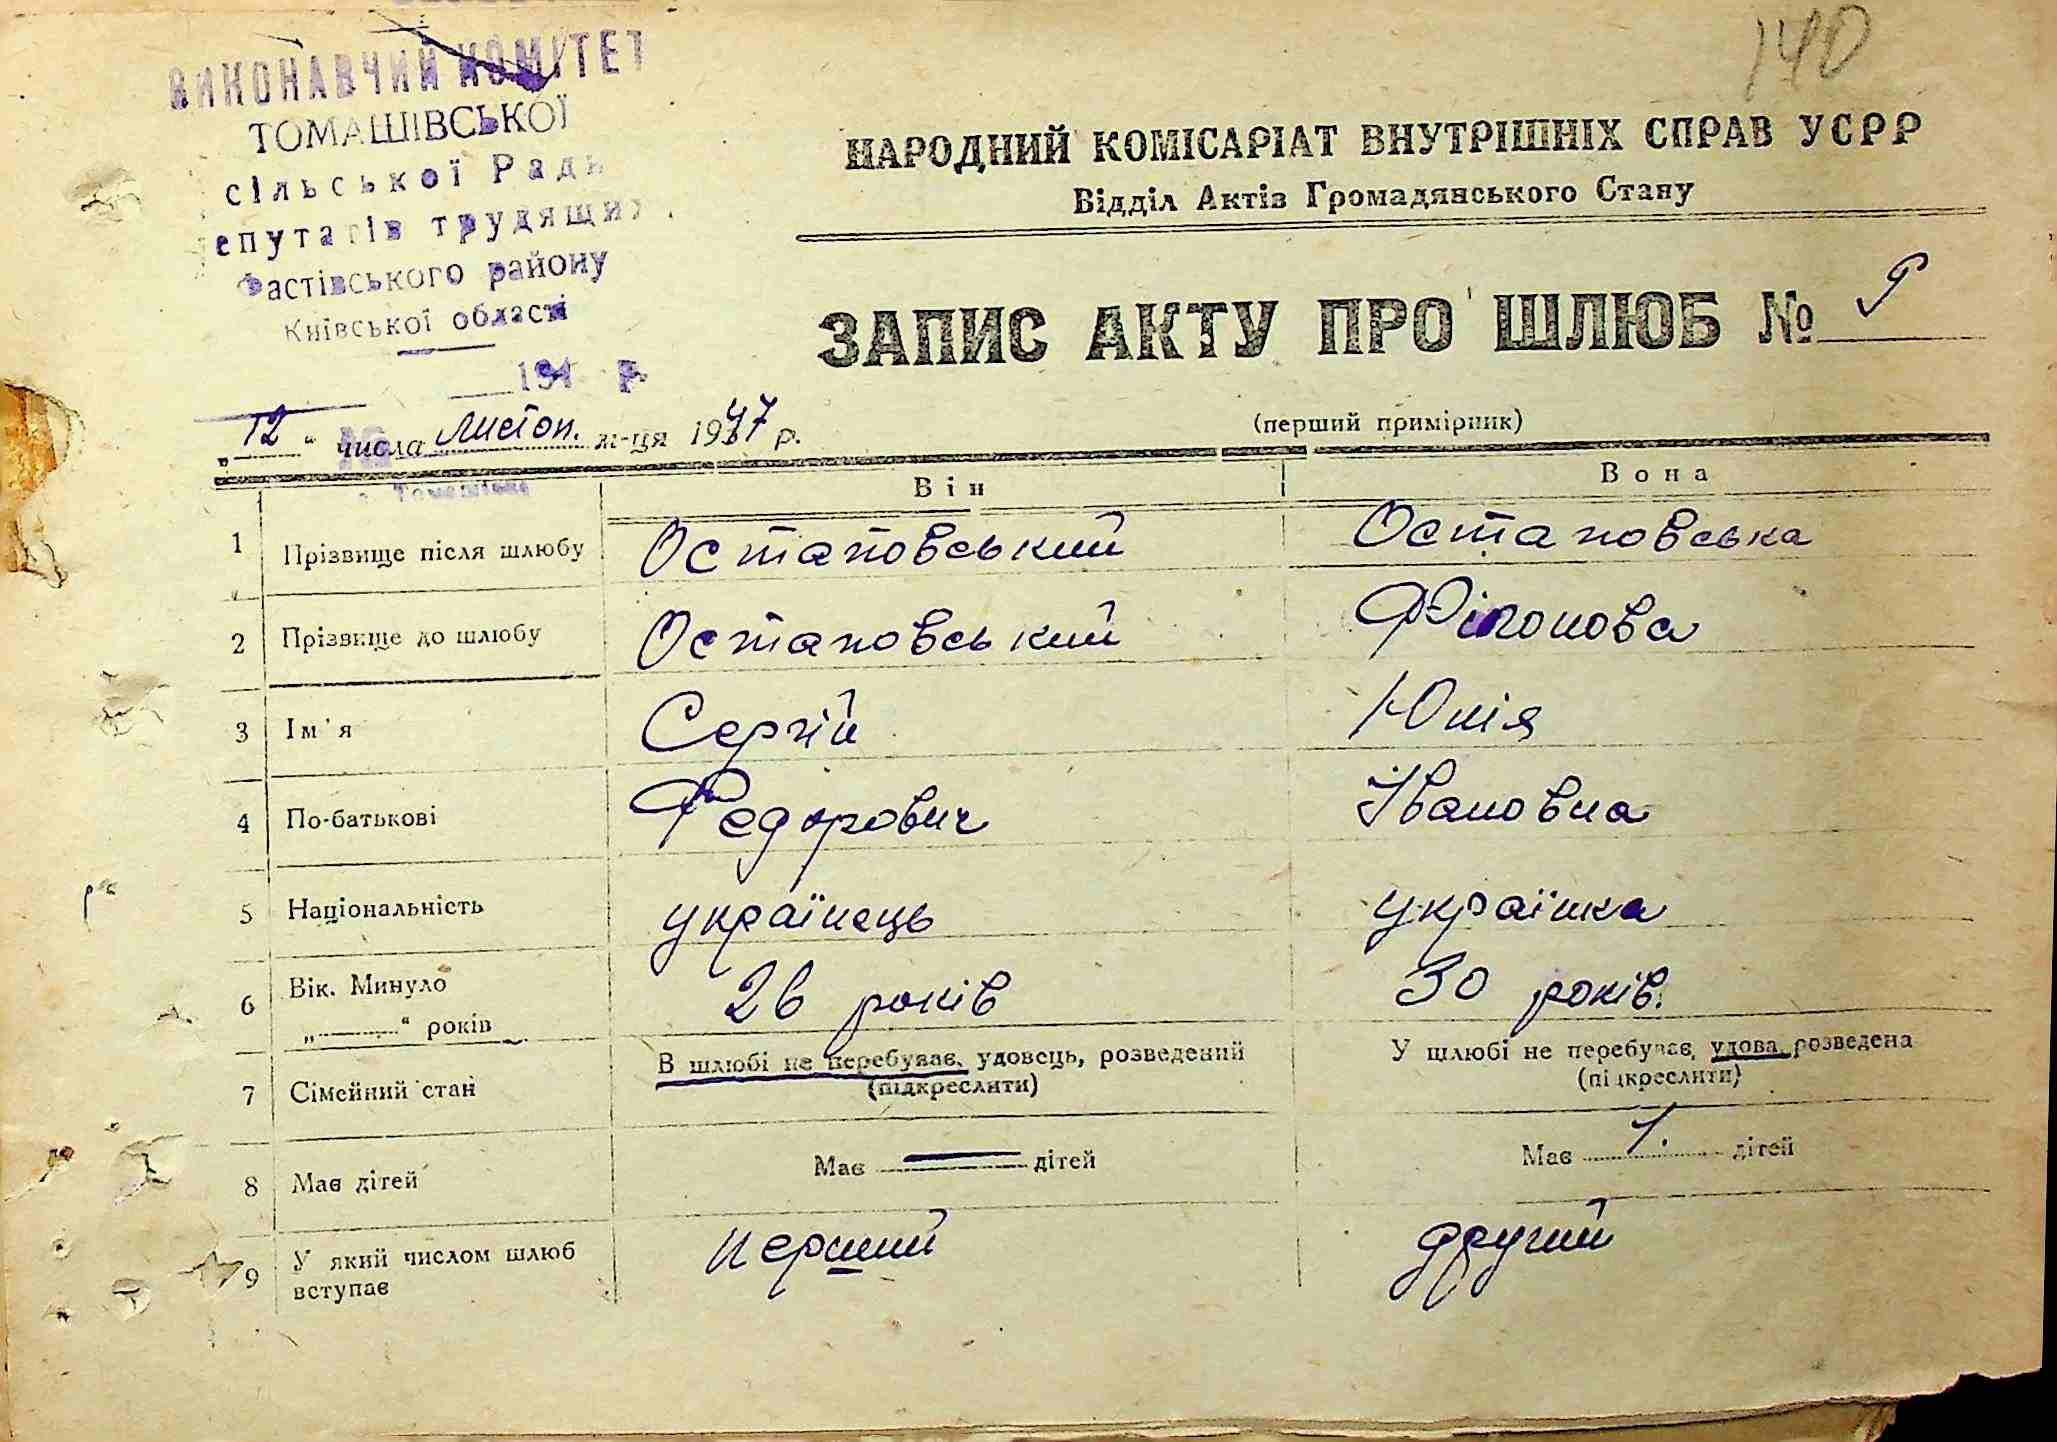 140
ВИКОНАВЧИЙ КОМІТЕТ
ТОМАШІВСЬКОЇ
сільської Ради
депутатів трудящих
Фастівського району
Київської області
194 р.
НАРОДНИЙ КОМІСАРІАТ ВНУТРІШНІХ СПРАВ УСРР
Відділ Актів Громадянського Стану
ЗАПИС АКТУ ПРО ШЛЮБ № 9
„12“ числа листоп. м-ця 1947 р.
(перший примірник)
№
с. Томашівка
Він Вона
1 Прізвище після шлюбу Остаповський Остаповська
2 Прізвище до шлюбу Остаповський Філонова
3 Ім'я Сергій Юлія
4 По-батькові Федорович Івановна
5 Національність українець українка
6 Вік. Минуло 26 років 30 років.
„ “ років
7 Сімейний стан В шлюбі не перебуває, удовець, розведений У шлюбі не перебуває, удова, розведена
(підкреслити) (підкреслити)
8 Має дітей Має — дітей Має 1. дітей
9 У який числом шлюб вступає перший другий